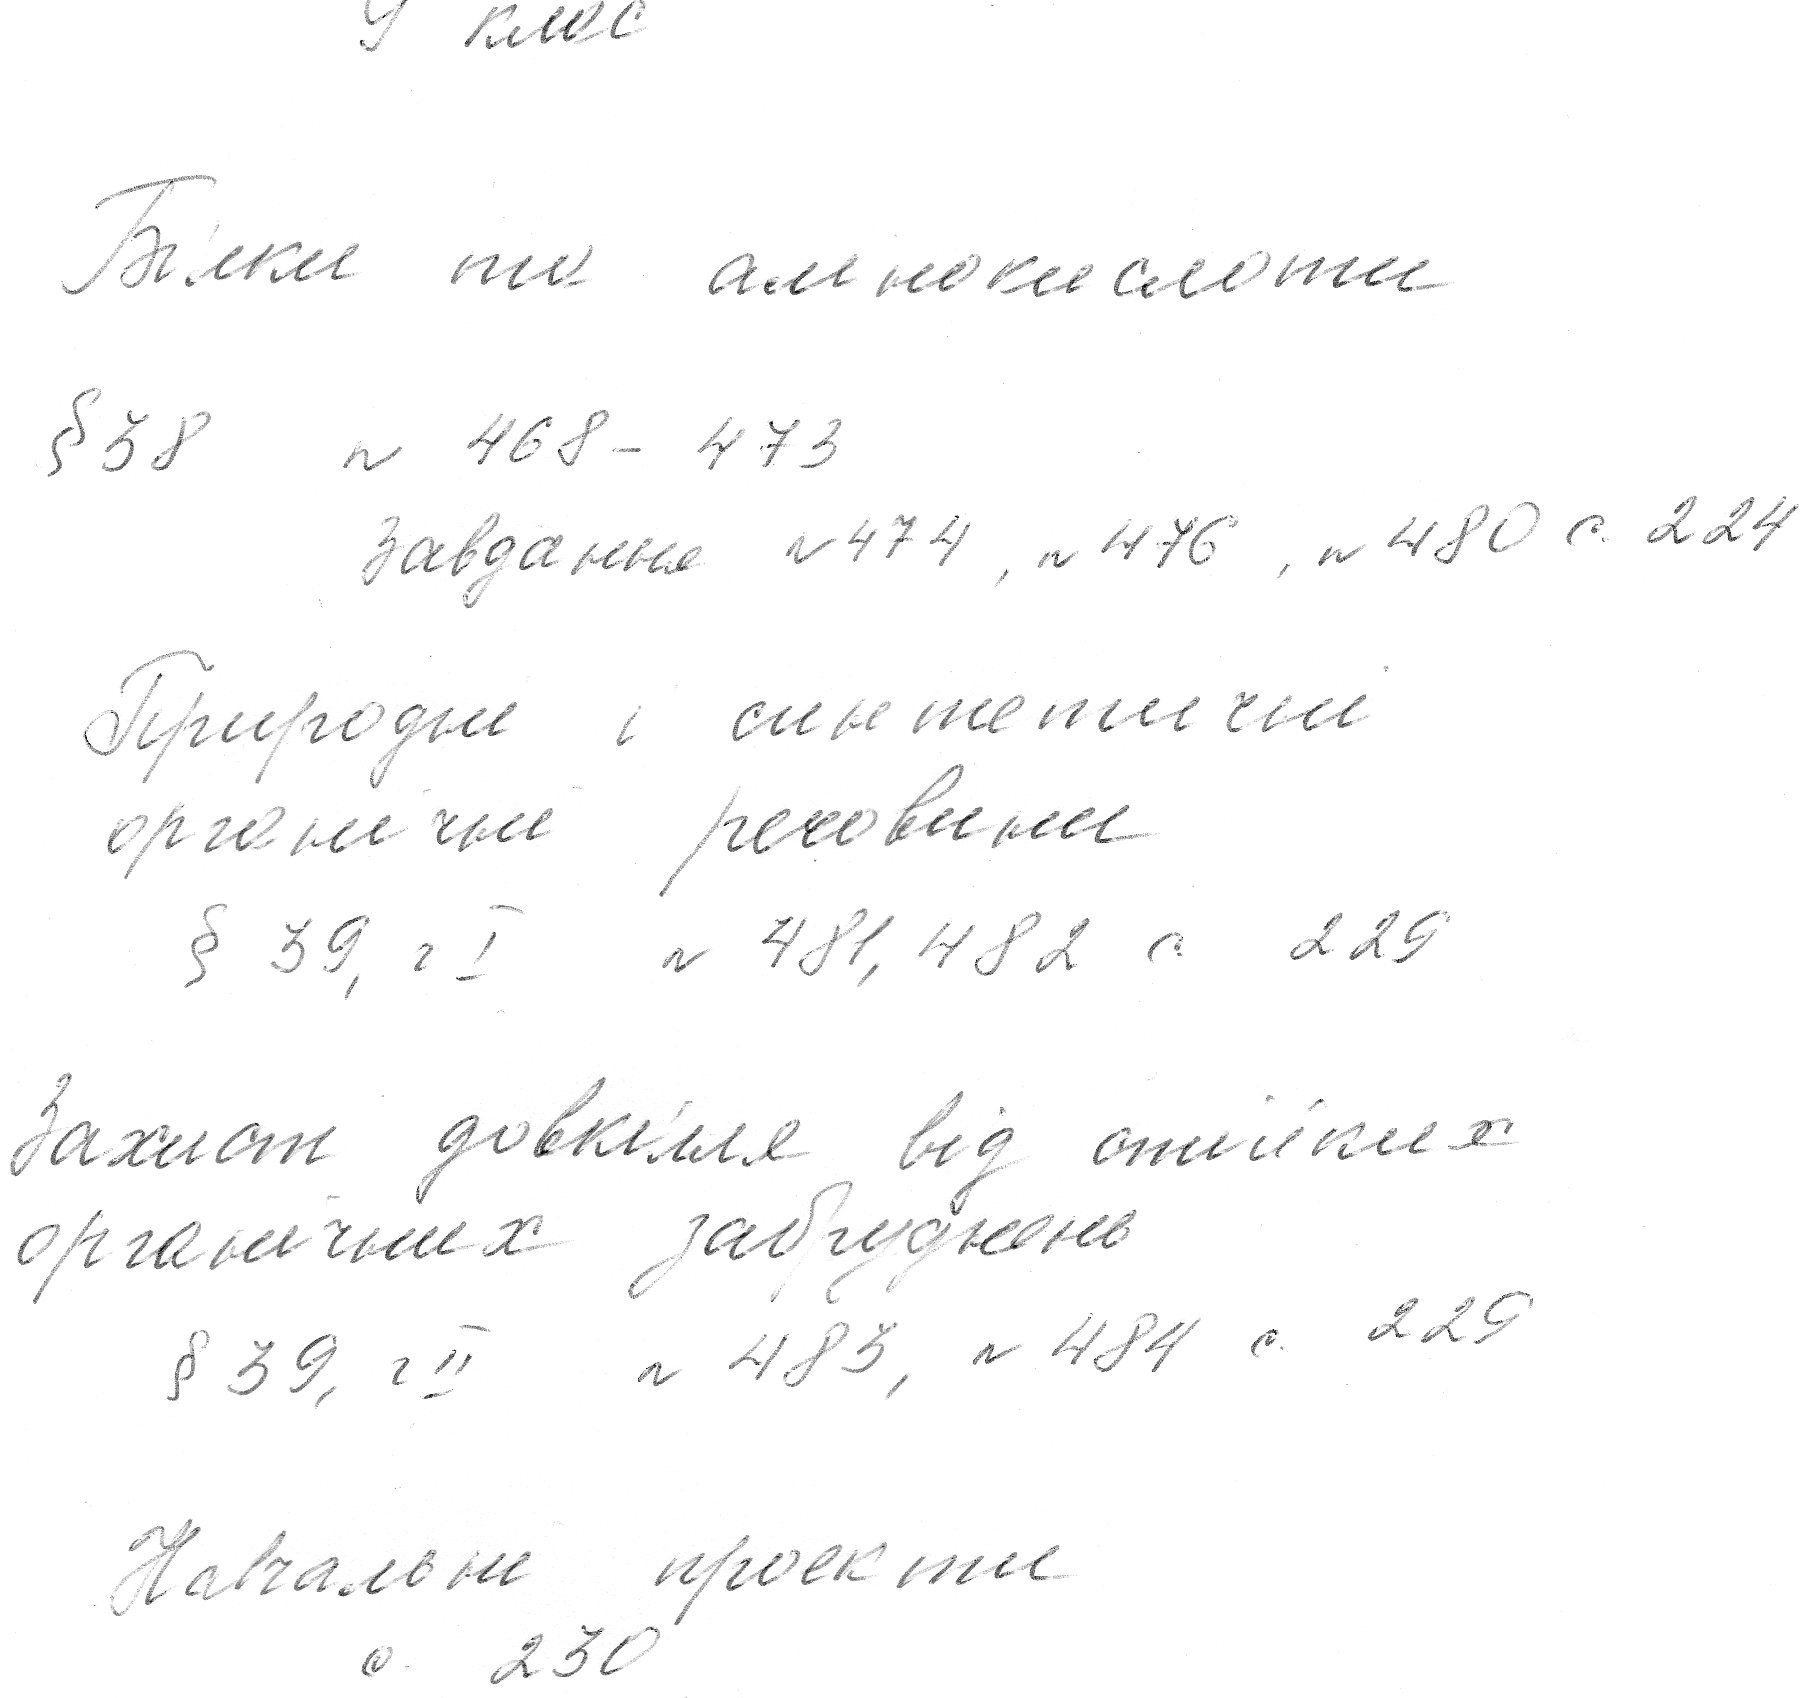 9 клас
Білки та амінокислоти
§38 № 468-473
Завдання №474, №476, №480 с. 224
Природні і синтетичні
органічні речовини
§ 39, г I № 481, 482 с. 229
Захист довкілля від стійких
органічних забруднень
§ 39, г II № 483, № 484 с. 229
Навчальні проекти
с. 230